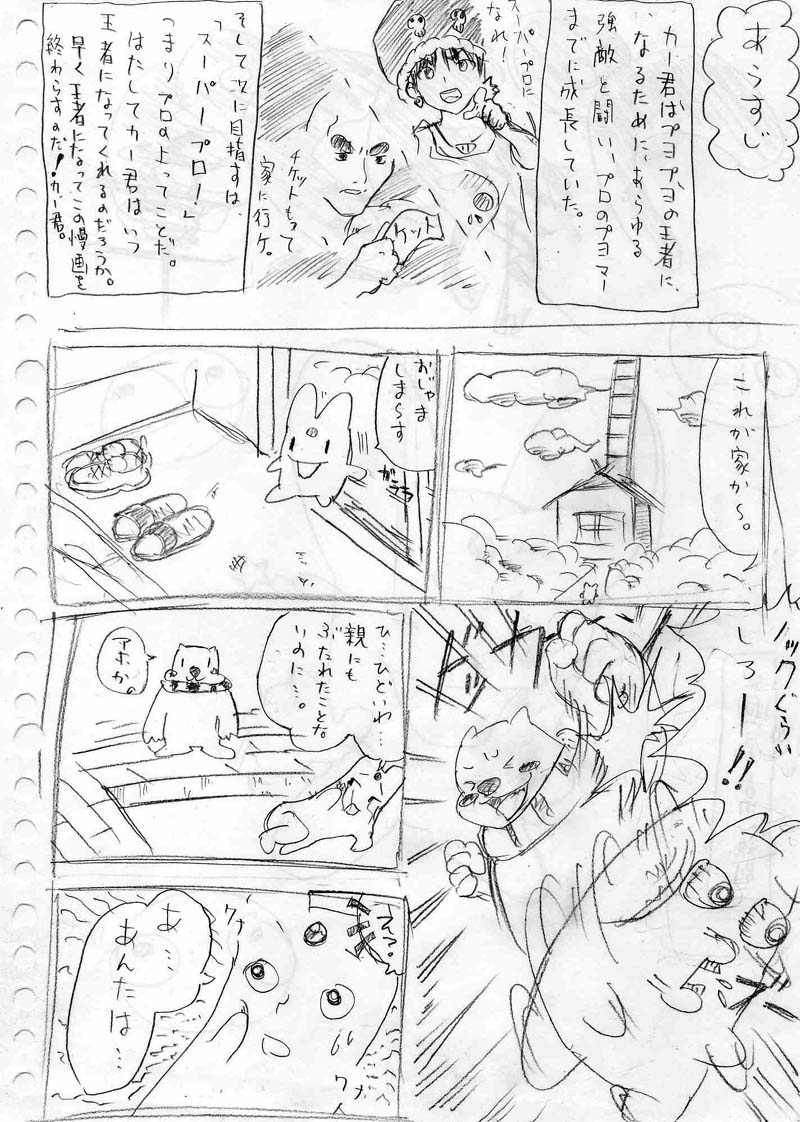 あらすじ
カー君はプヨプヨの王者に、
なるために、あらゆる
強敵と闘い、プロのプヨマー
までに成長していた。
スーパープロに
なれ!
チケットもって
家に行ケ。
ケット
そして次に目指すは、
「スーパープロ!」
つまりプロの上ってことだ。
はたしてカー君はいつ
王者になってくれるのだろうか。
早く王者になってこの漫画を
終わらすのだ!カー君。
これが家か〜。
おじゃま
しま〜す
ガララ
ノックぐらい
しろー!!
ひ…ひどいわ…
親にも
ぶたれたことな
いのに…。
アホか。
クナ
クナ
あ…
あんたは…